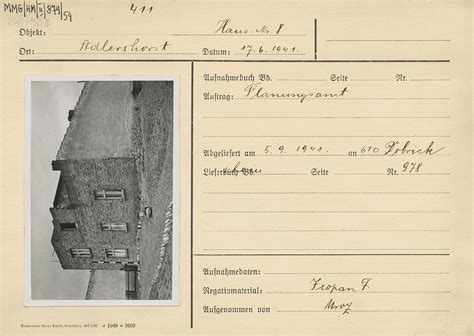 MMG/HM/II/879/59
411
Objekt: Haus Nr. 8
Ort: Adlershorst Datum: 17.6.1941.
Aufnahmebuch Bd. Seite Nr.
Auftrag: Planungsamt
Abgeliefert am 5.9.1941. an Dobrick
Lieferbuch Bd. Seite Nr. 978
Aufnahmedaten:
Negativmaterial: Isopan F
Aufgenommen von